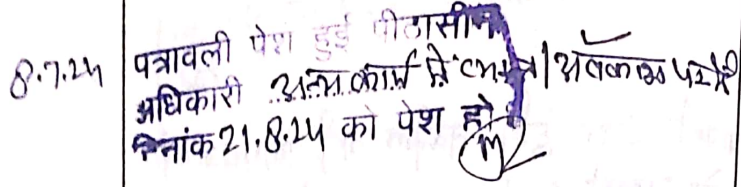 8.7.24 पत्रावली पेश हुई पीठासीन
अधिकारी अन्य कार्य में व्यस्त/अवकाश पर है
दिनांक 21.8.24 को पेश हो